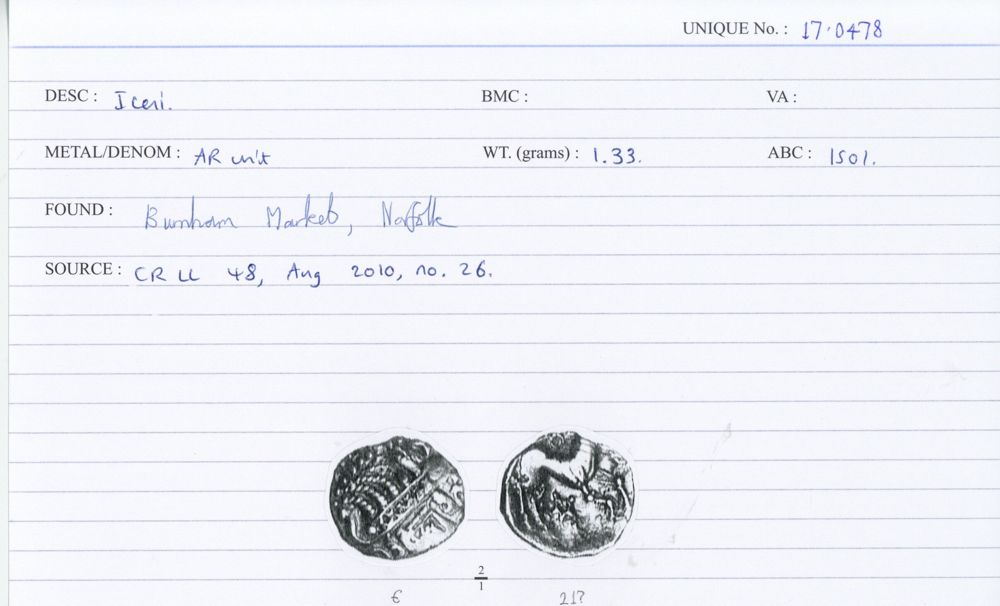 UNIQUE No. : 17.0478
DESC : Iceni. BMC : VA :
METAL/DENOM : AR unit WT. (grams) : 1.33. ABC : 1501.
FOUND : Burnham Market, Norfolk
SOURCE : CR LL 48, Aug 2010, no. 26.
2
1
€ 217